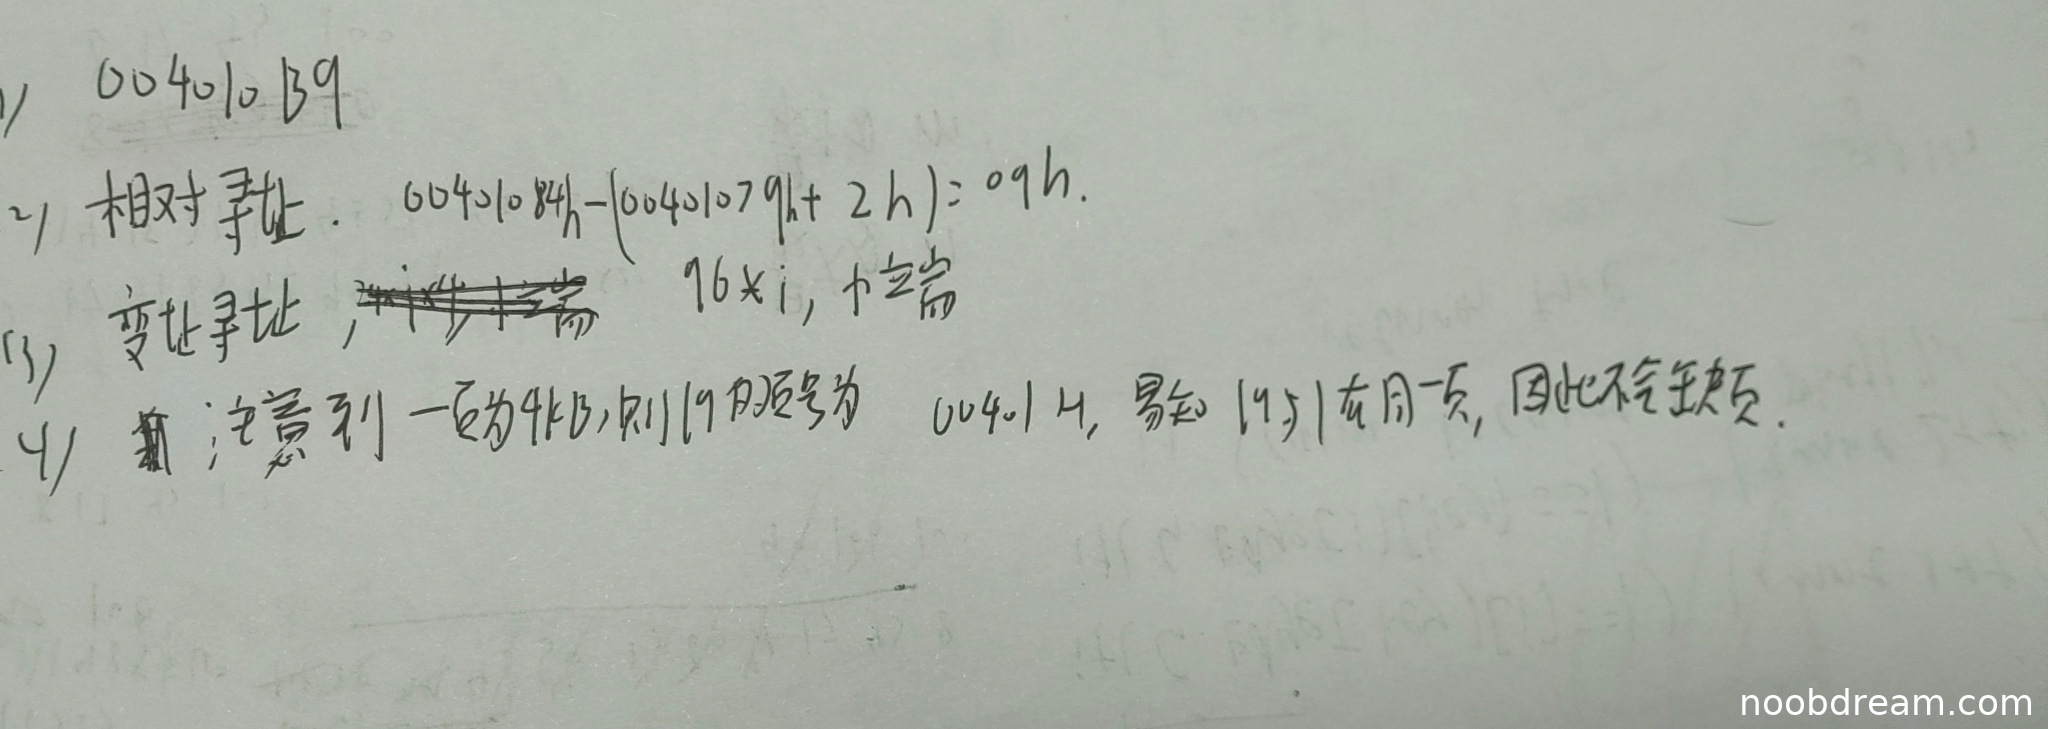 1) 004010B9
2) 相对寻址. 00401084h-(00401079h+2h)=09h.
(3) 变址寻址, 96*i, 小端
4) 注意到一页为4KB,则19的页号为 00401H, 易知19,51在同一页,因此不会缺页.
noobdream.com